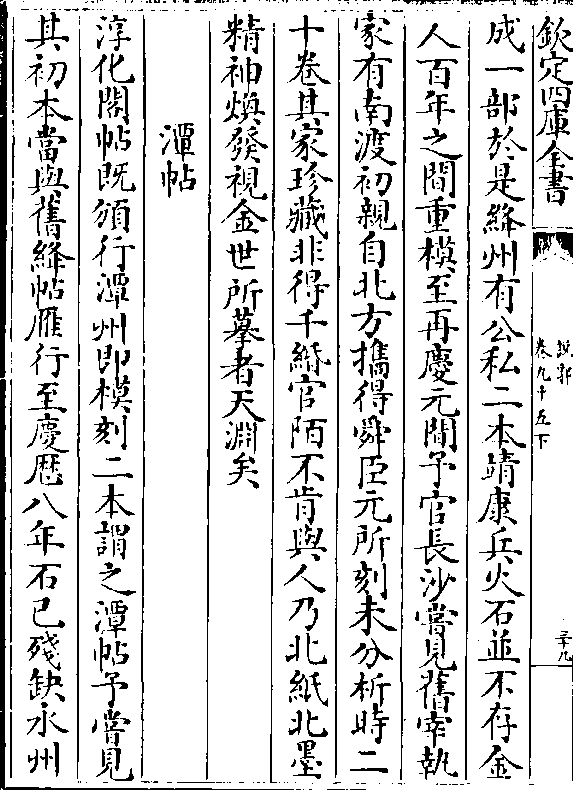 欽定四庫全書
說郛
卷九十五下
三十九
成一部於是絳州有公私二本靖康兵火石並不存金
人百年之間重模至再慶元間予官長沙嘗見舊宰執
家有南渡初親自北方攜得舜臣元所刻未分析時二
十卷其家珍藏非得千緡官陌不肯與人乃北紙北墨
精神煥發視金世所摹者天淵矣
潭帖
淳化閣帖既頒行潭州即模刻二本謂之潭帖予嘗見
其初本當與舊絳帖雁行至慶歷八年石已殘缺永州